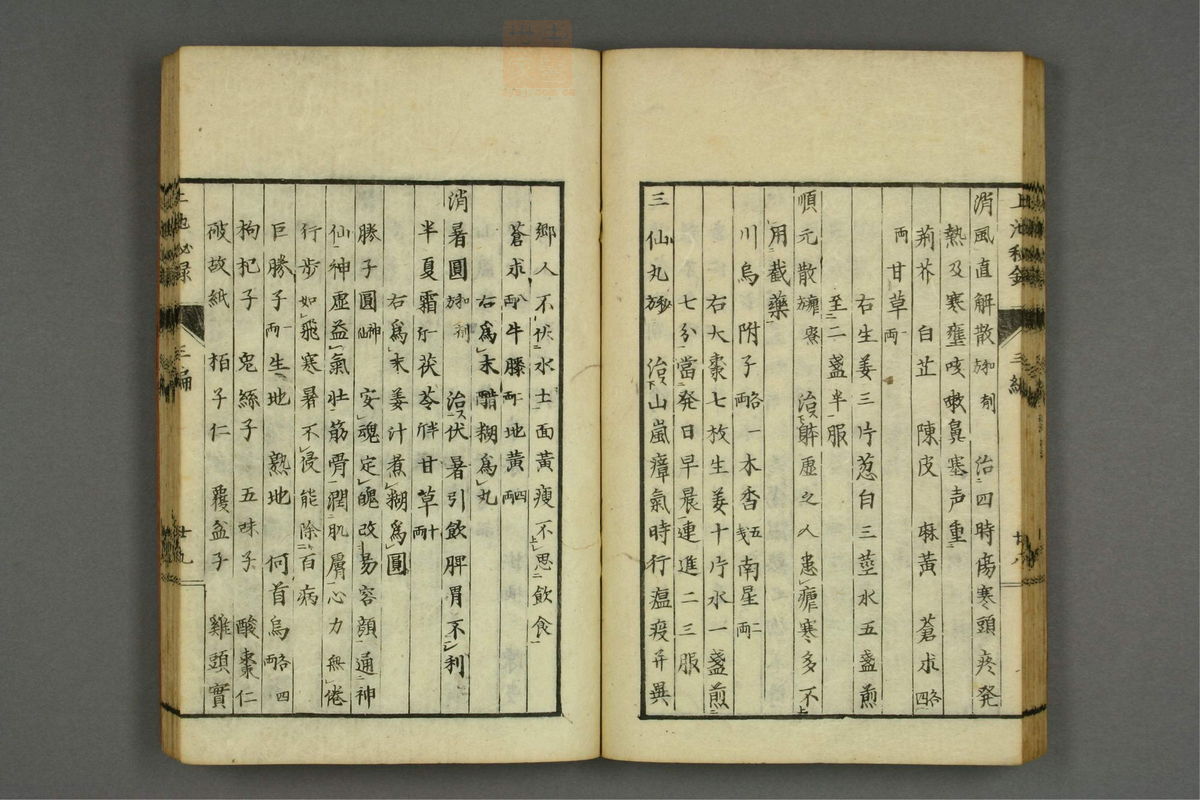 消風直解散和剤方 治四時傷寒頭疼発
熱及寒壅咳嗽鼻塞声重
荊芥 白芷 陳皮 麻黄 蒼朮各四
両 甘草一両
右生姜三片葱白三莖水五盞煎
至二盞半服
順元散癰寮方 治躰虚之人患瘧寒多不
用截薬
川烏 附子各一両 木香五戔 南星二両
右大棗七枚生姜十片水一盞煎
七分當発日早晨連進二三服
三仙丸方 治山嵐瘴氣時行瘟疫并異
鄉人不伏水土面黃瘦不思飲食
蒼朮八両 牛膝二両 地黃四両
右為末醋糊為丸
消暑圓和剤方 治伏暑引飲脾胃不利
半夏霜 茯苓 甘草
右為末姜汁煮糊為圓
勝子圓神仙 安魂定魄改易容顔通神
仙神虚益氣壮筋骨潤肌膚心力無倦
行歩如飛寒暑不侵能除百病
巨勝子一両 生地 熟地 何首烏各四両
枸杞子 兔絲子 五味子 酸棗仁
破故紙 栢子仁 覆盆子 雞頭實
三編
廿八
三編
廿九